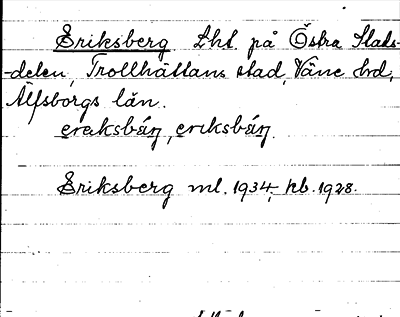 Eriksberg. Lht. på Östra Stads-
-delen, Trollhättans stad, Väne hd,
Älfsborgs län.
ereksbáŋ, eriksbáŋ.
Eriksberg ml. 1934, kb. 1928.